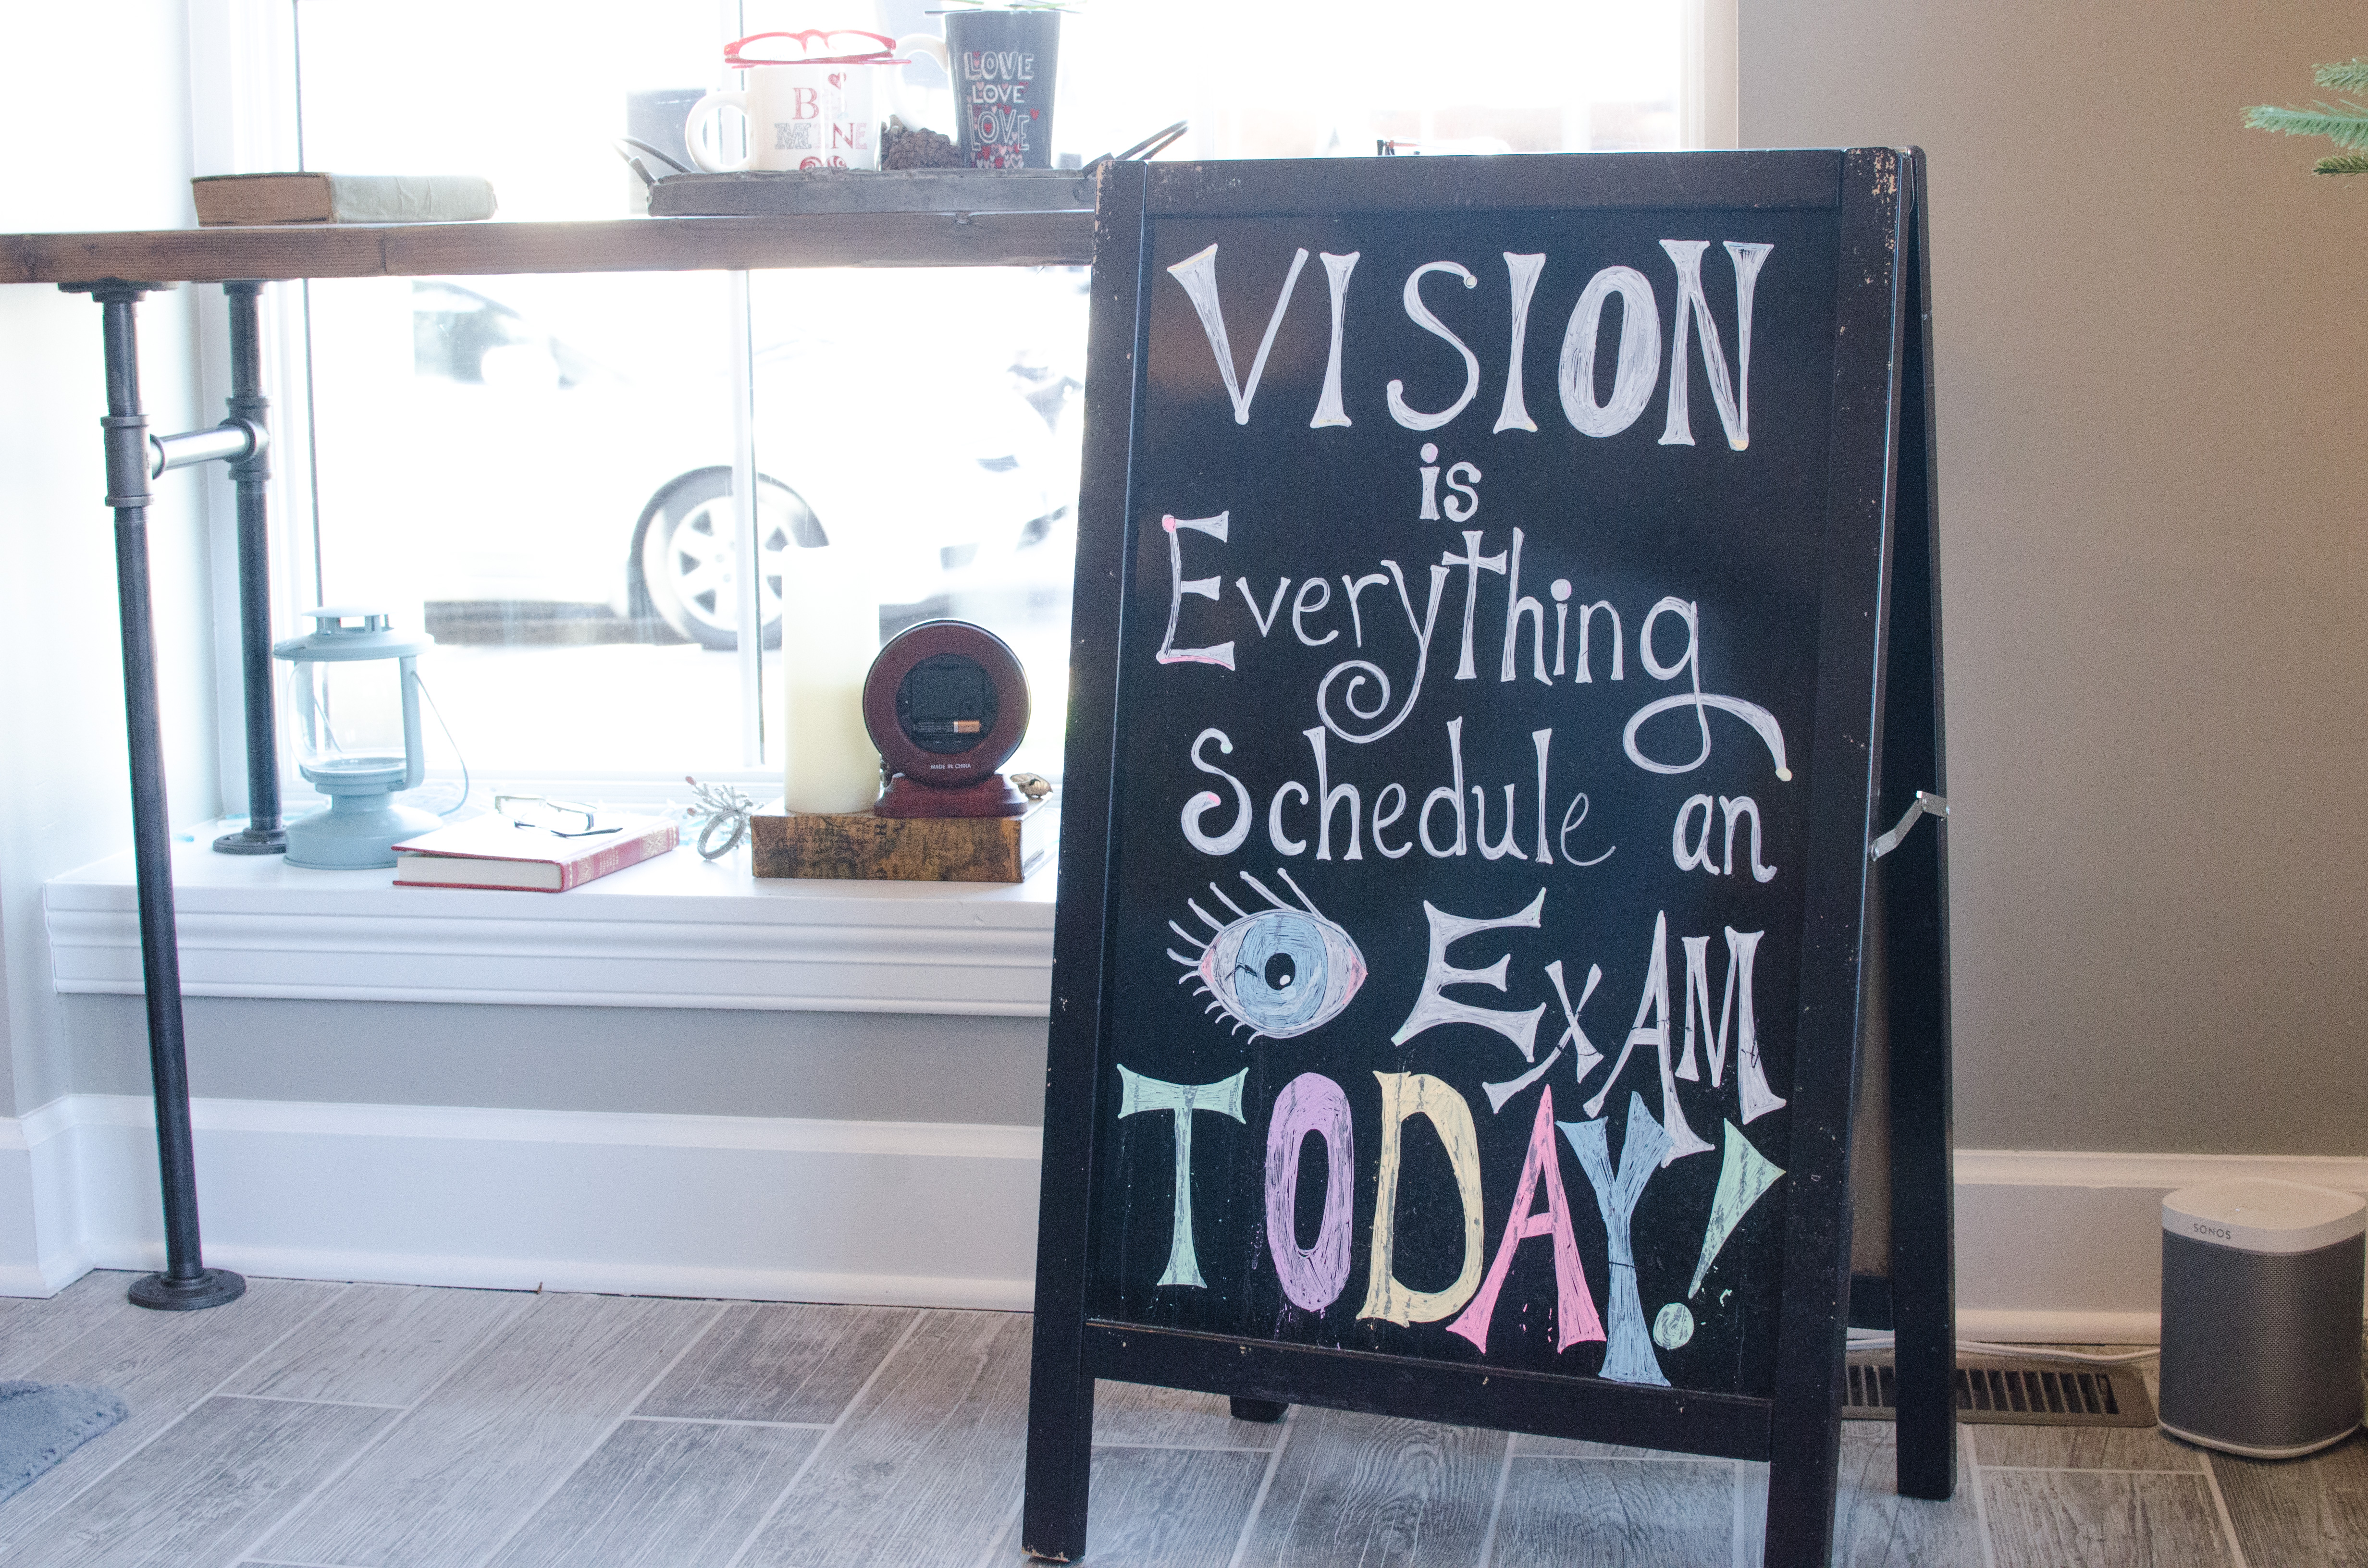 BE
MINE
LOVE
LOVE
LOVE
VISION
is
Everything
Schedule an
EXAM
TODAY!
MADE IN CHINA
SONOS